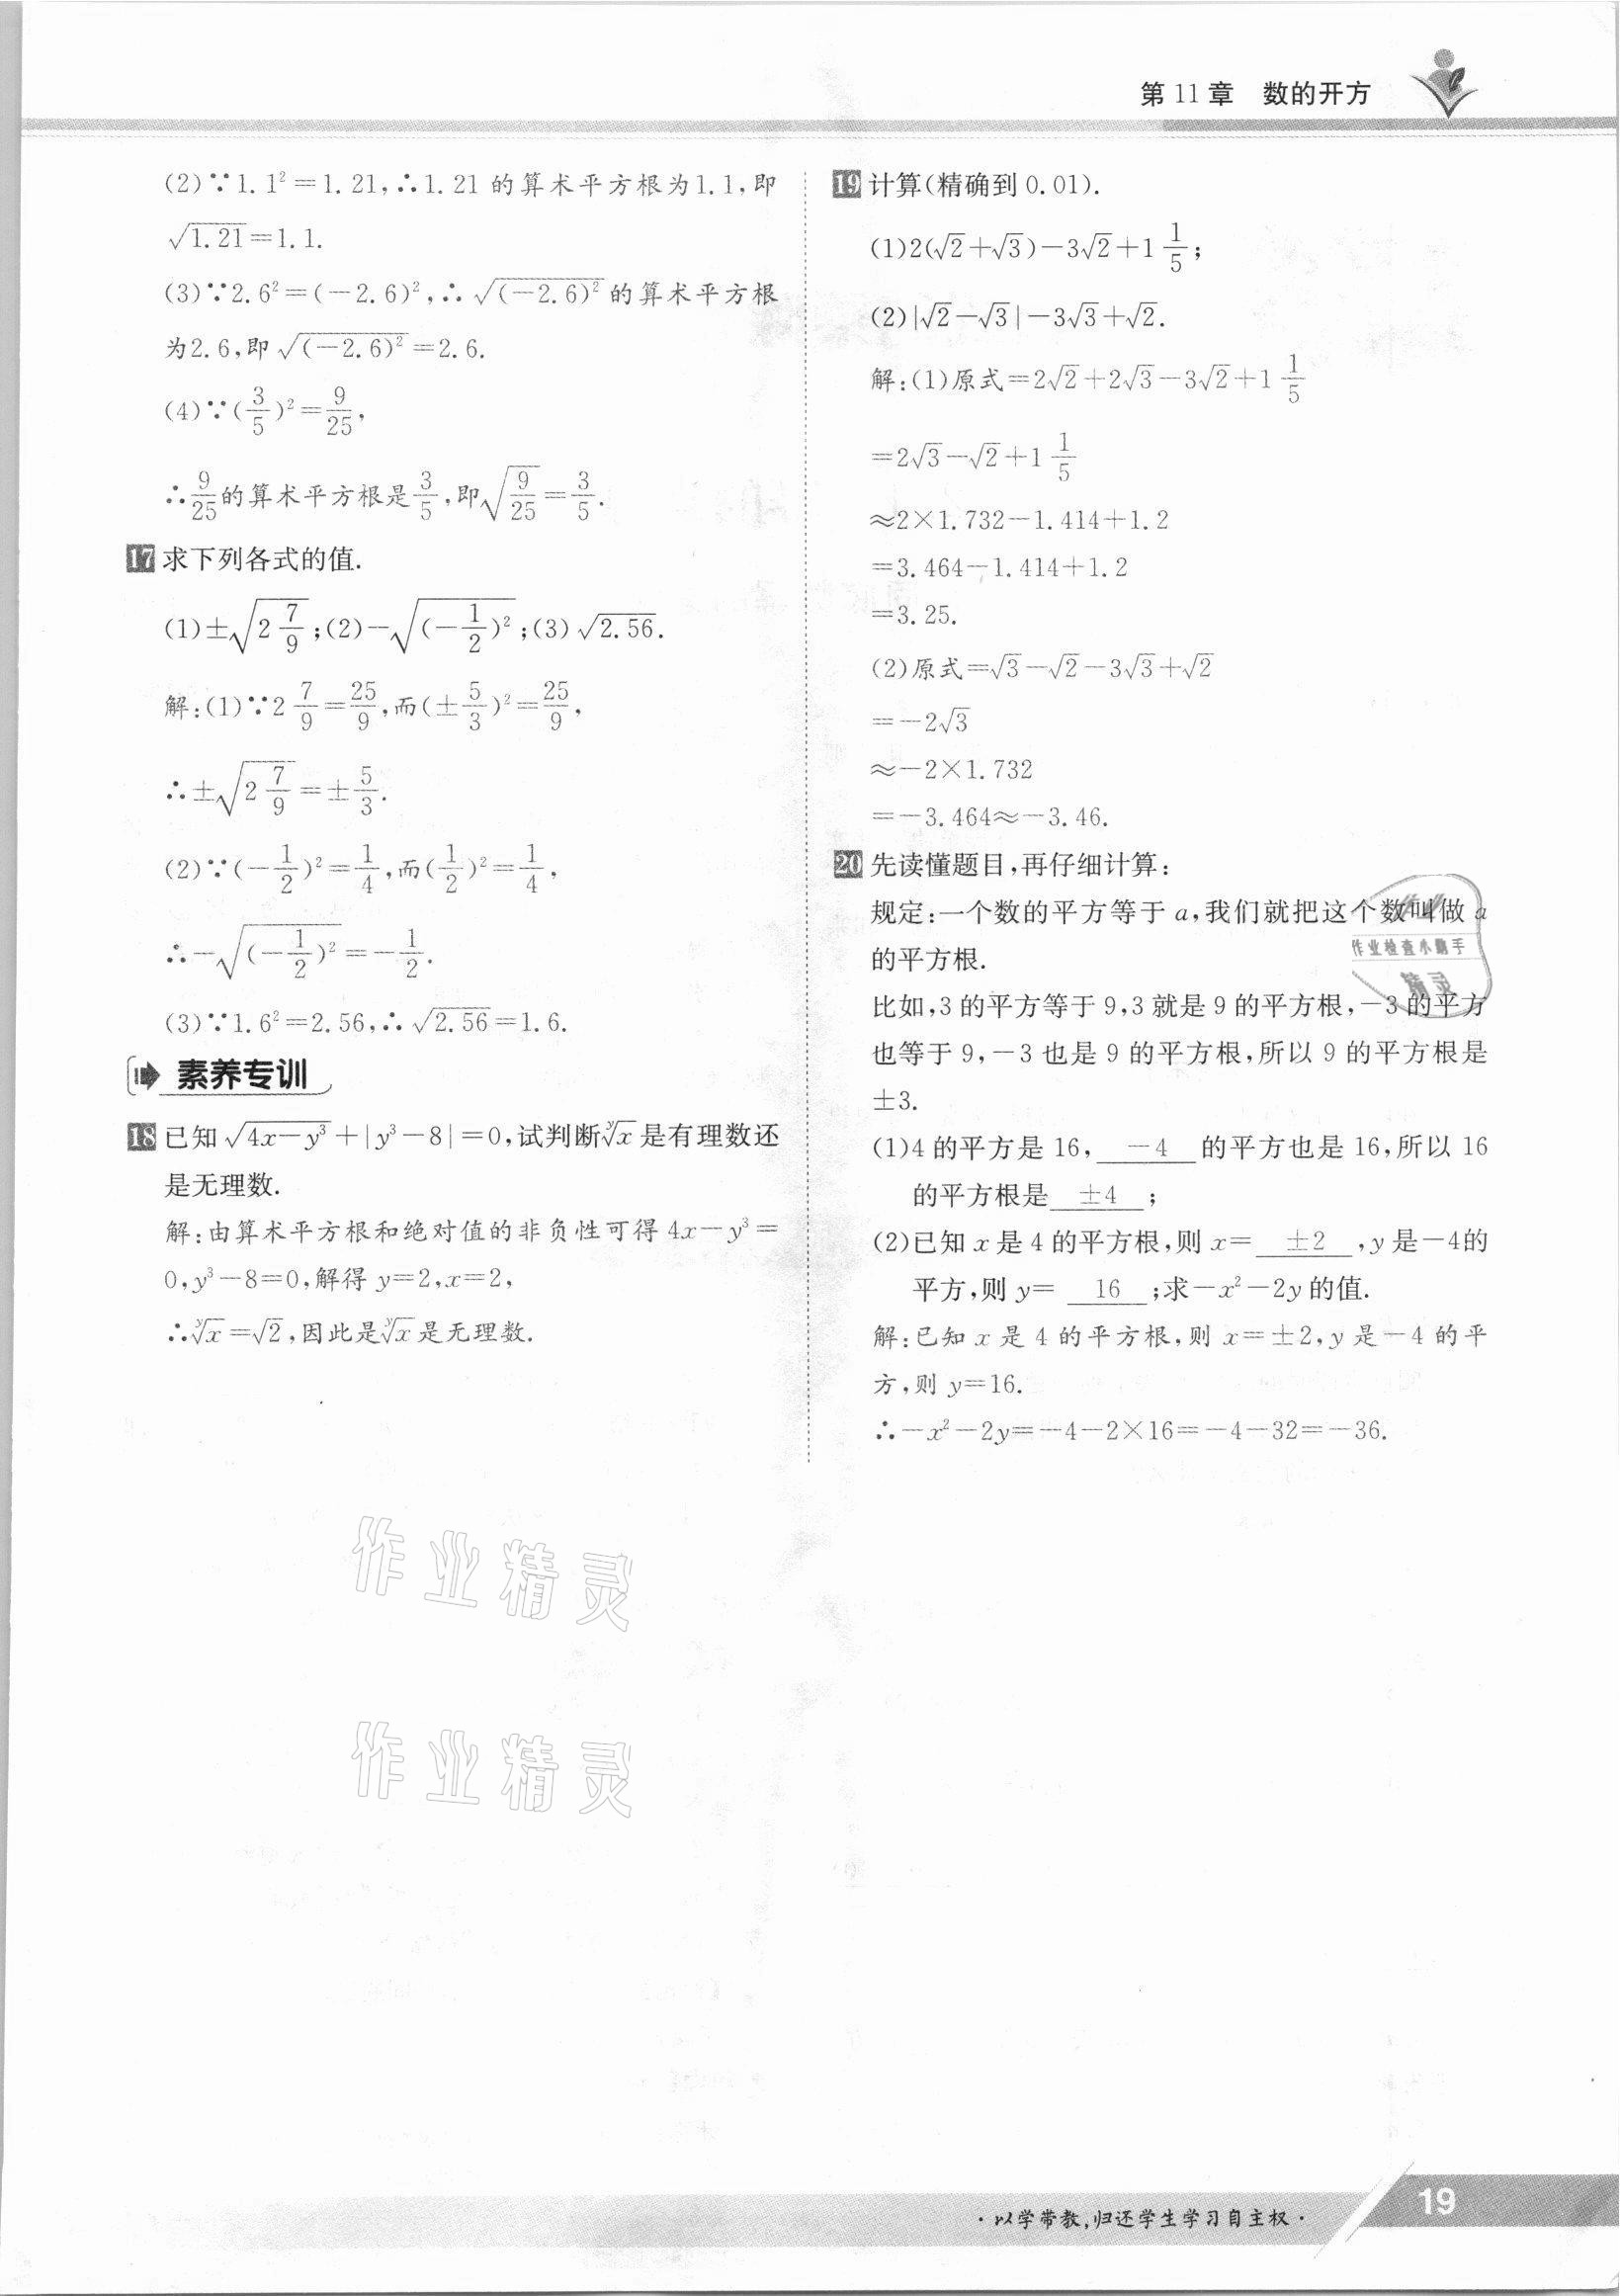 第 11 章　数的开方
(2)∵1.1²=1.21,∴1.21 的算术平方根为1.1,即
√1.21=1.1.
(3)∵2.6²=(-2.6)²,∴√(-2.6)² 的算术平方根
为2.6,即√(-2.6)²=2.6.
(4)∵(3/5)²=9/25,
∴9/25的算术平方根是3/5,即√(9/25)=3/5.
17 求下列各式的值.
(1)±√(2 7/9);(2)-√((-1/2)²);(3)√2.56.
解:(1)∵2 7/9=25/9,而(±5/3)²=25/9,
∴±√(2 7/9)=±5/3.
(2)∵(-1/2)²=1/4,而(1/2)²=1/4,
∴-√((-1/2)²)=-1/2.
(3)∵1.6²=2.56,∴√2.56=1.6.
素养专训
18 已知√(4x-y³)+|y³-8|=0,试判断ʸ√x是有理数还
是无理数.
解:由算术平方根和绝对值的非负性可得 4x-y³=
0,y³-8=0,解得 y=2,x=2,
∴ʸ√x=√2,因此是ʸ√x是无理数.
19 计算(精确到 0.01).
(1)2(√2+√3)-3√2+1 1/5;
(2)|√2-√3|-3√3+√2.
解:(1)原式=2√2+2√3-3√2+1 1/5
=2√3-√2+1 1/5
≈2×1.732-1.414+1.2
=3.464-1.414+1.2
=3.25.
(2)原式=√3-√2-3√3+√2
=-2√3
≈-2×1.732
=-3.464≈-3.46.
20 先读懂题目,再仔细计算:
规定:一个数的平方等于 a,我们就把这个数叫做 a
的平方根.
比如,3 的平方等于 9,3 就是 9 的平方根,-3 的平方
也等于 9,-3 也是 9 的平方根,所以 9 的平方根是
±3.
(1)4 的平方是 16, -4 的平方也是 16,所以 16
的平方根是 ±4 ;
(2)已知 x 是 4 的平方根,则 x= ±2 ,y 是-4的
平方,则 y= 16 ;求-x²-2y 的值.
解:已知 x 是 4 的平方根,则 x=±2,y 是-4 的平
方,则 y=16.
∴-x²-2y=-4-2×16=-4-32=-36.
作业检查小助手
精灵
作业精灵
作业精灵
·以学带教,归还学生学习自主权·
19